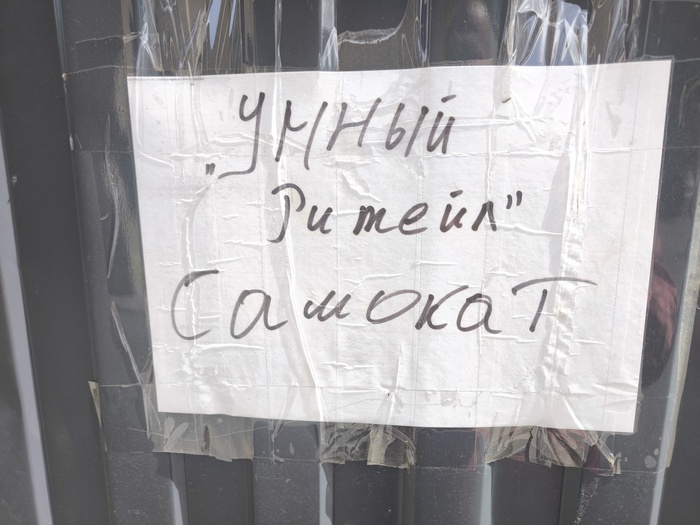 "Умный
Ритейл"
Самокат